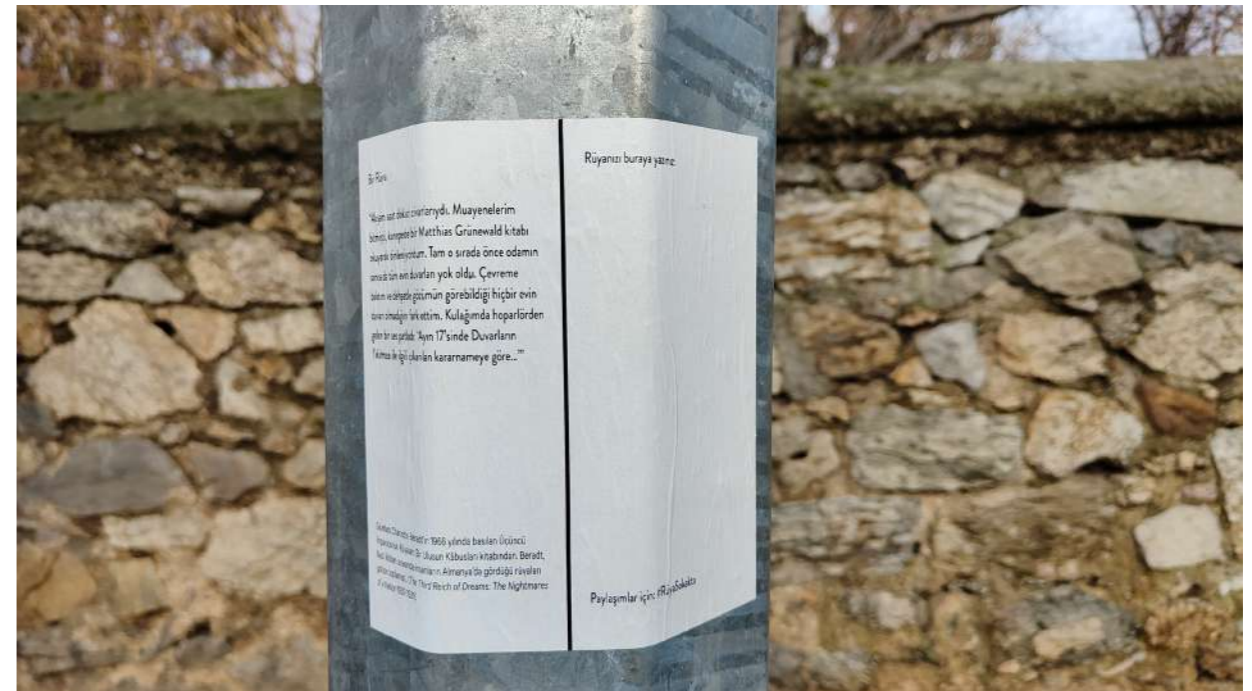 Bir Rüya:
"Akşam saat dokuz civarlarıydı. Muayenelerim
bitmişti, kanepede bir Matthias Grünewald kitabı
okuyarak dinleniyordum. Tam o sırada önce odamın
sonra da tüm evin duvarları yok oldu. Çevreme
baktım ve dehşetle gözümün görebildiği hiçbir evin
duvarı olmadığını fark ettim. Kulağımda hoparlörden
gelen bir ses patladı: "Ayın 17'sinde Duvarların
Yıkılması ile ilgili çıkarılan kararnameye göre...""
Charlotte Beradt'ın 1966 yılında basılan Üçüncü
Rüyaları: Bir Ulusun Kâbusları kitabından. Beradt,
insanların Almanya'da gördüğü rüyaları
(The Third Reich of Dreams: The Nightmares
Rüyanızı buraya yazınız:
Paylaşımlar için: #RüyaSokakta